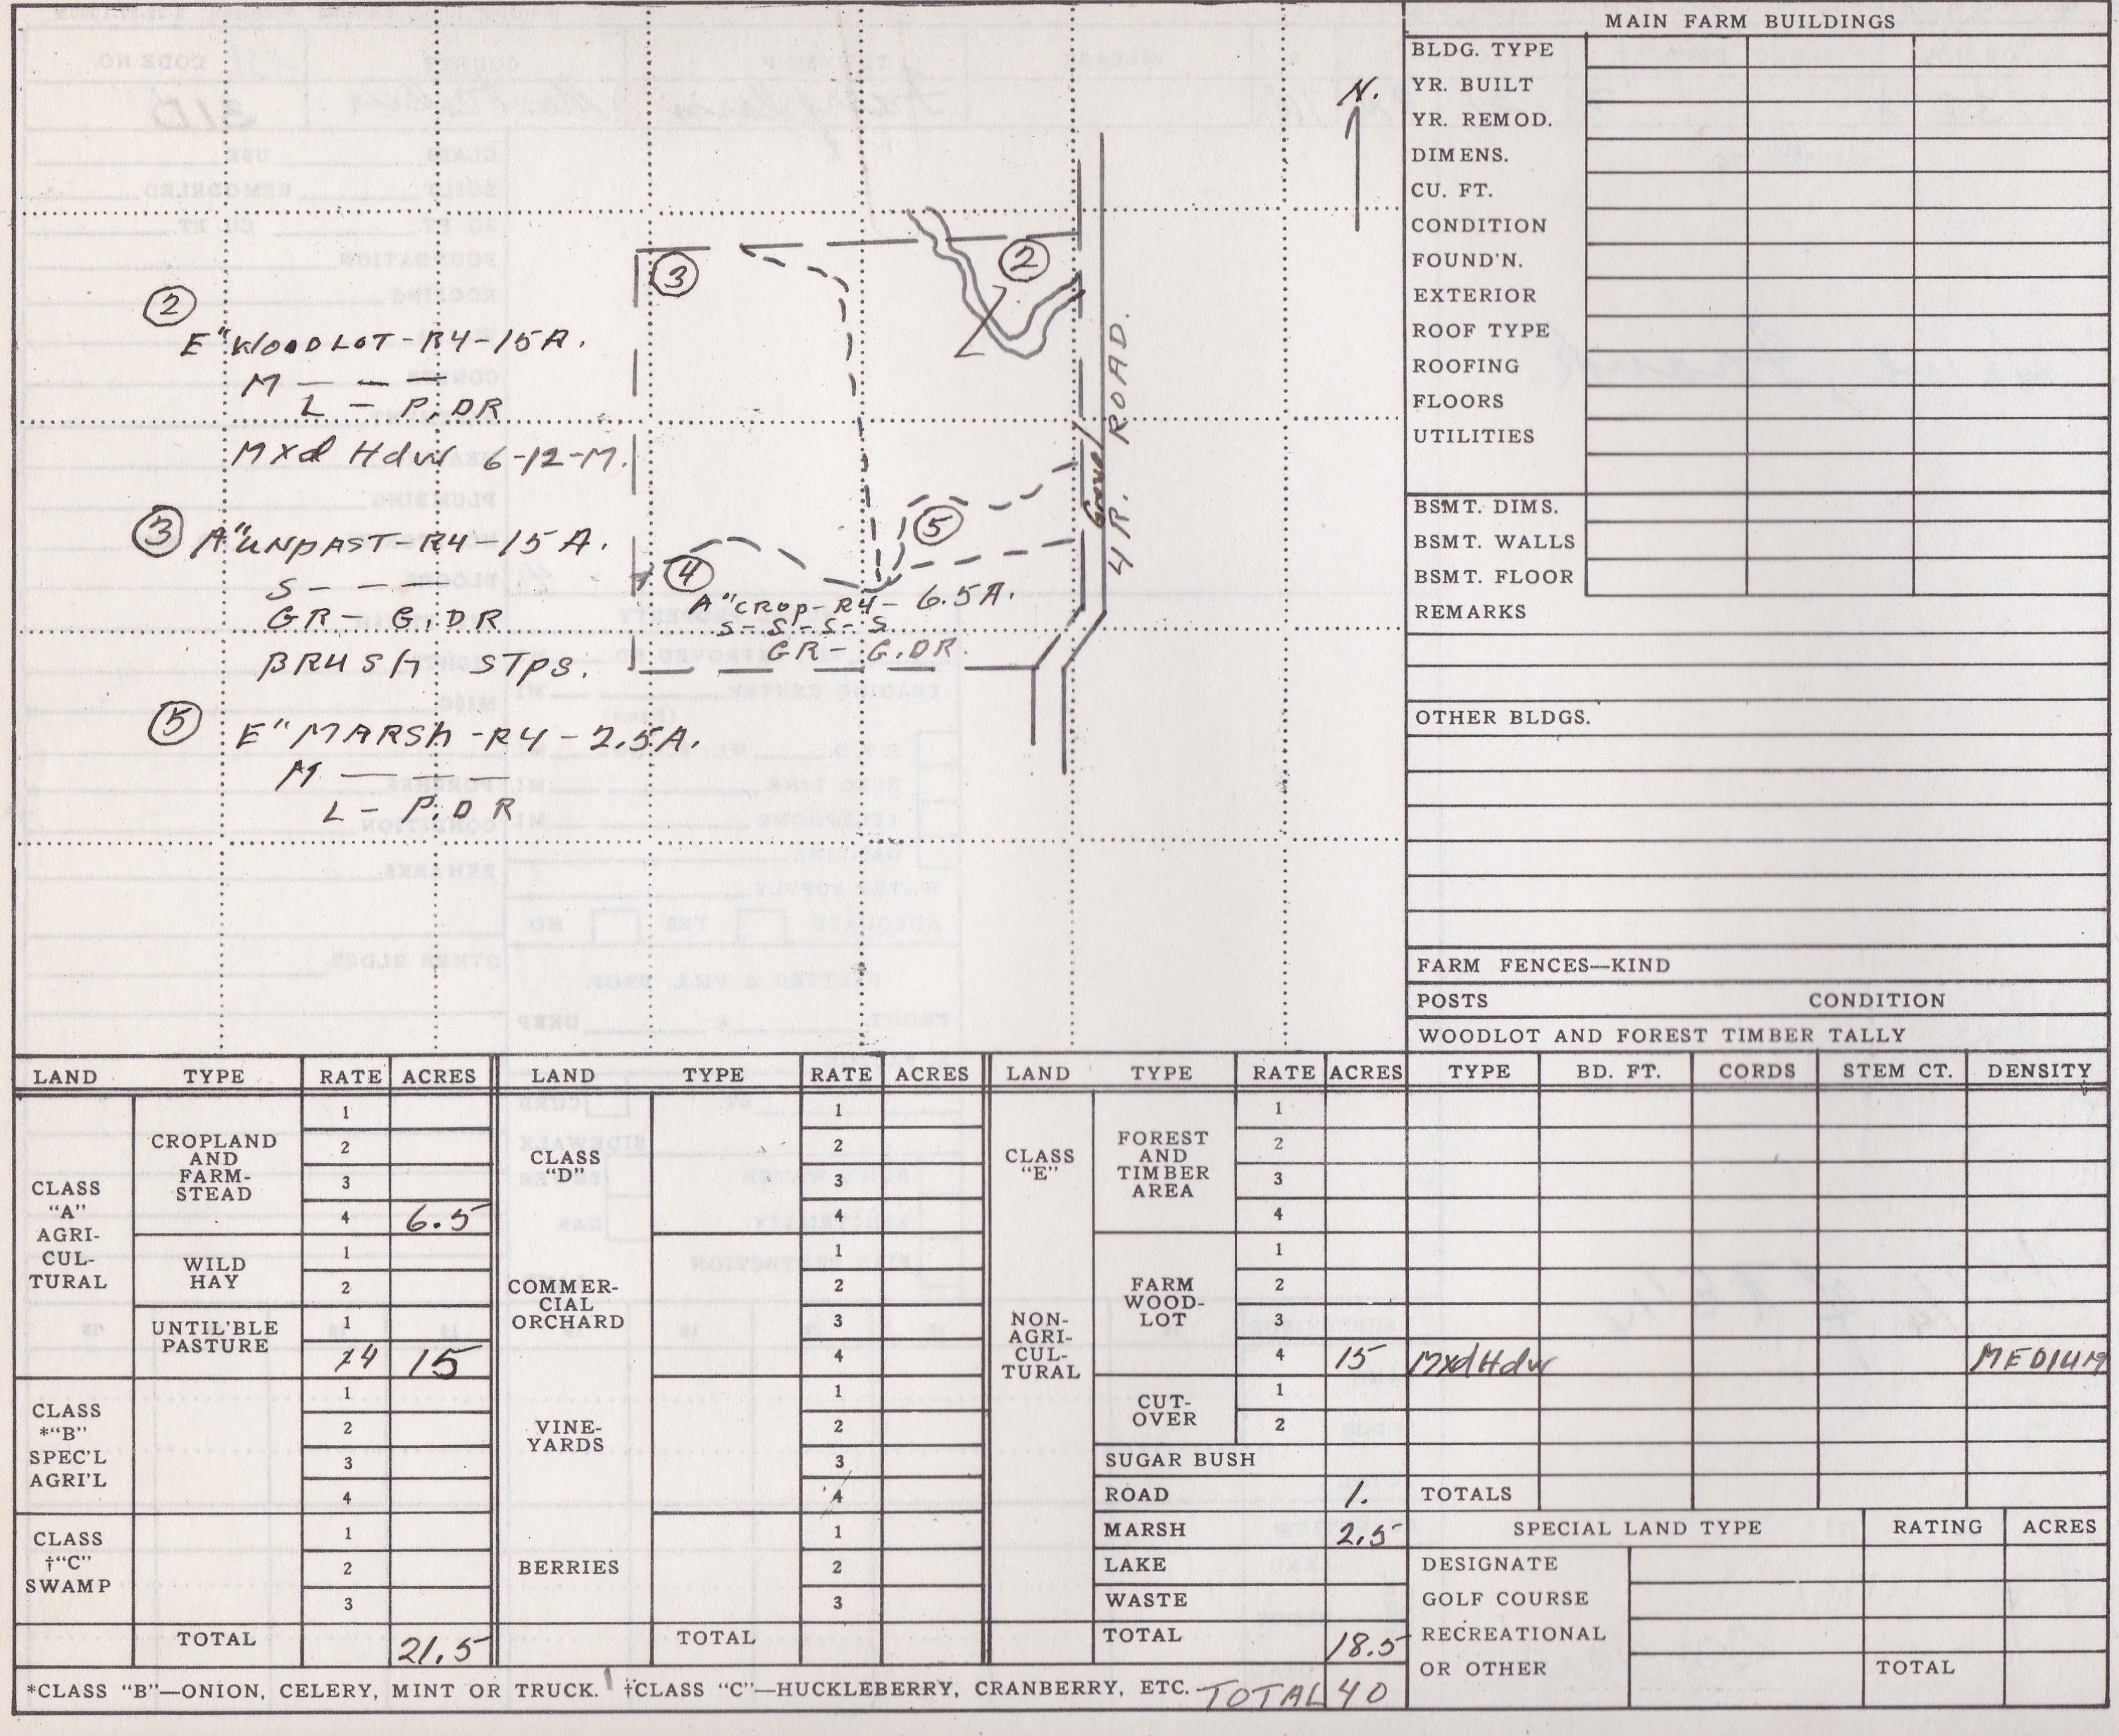 N.
②
③
②
E" WOODLOT-R4-15A.
M — — —
L - P. DR
Mxd Hdw 6-12-M.
③ A" UNPAST-R4-15 A.
S- — — —
GR- G. DR
BRUSH STPS.
④
A" CROP-R4- 6.5A.
S-S-S-S
GR- G.DR.
⑤
⑤ E" MARSH -R4-2.5A.
M — — —
L - P. D R
Gravel
4 R. ROAD.
MAIN FARM BUILDINGS
BLDG. TYPE
YR. BUILT
YR. REMOD.
DIMENS.
CU. FT.
CONDITION
FOUND'N.
EXTERIOR
ROOF TYPE
ROOFING
FLOORS
UTILITIES
BSMT. DIMS.
BSMT. WALLS
BSMT. FLOOR
REMARKS
OTHER BLDGS.
FARM FENCES—KIND
POSTS CONDITION
WOODLOT AND FOREST TIMBER TALLY
LAND TYPE RATE ACRES LAND TYPE RATE ACRES LAND TYPE RATE ACRES TYPE BD. FT. CORDS STEM CT. DENSITY
CLASS
"A"
AGRI-
CUL-
TURAL
CROPLAND
AND
FARM-
STEAD
1
2
3
4 6.5
WILD
HAY
1
2
UNTIL'BLE
PASTURE
1
4 15
CLASS
*"B"
SPEC'L
AGRI'L
1
2
3
4
CLASS
†"C"
SWAMP
1
2
3
TOTAL 21.5
CLASS
"D"
COMMER-
CIAL
ORCHARD
VINE-
YARDS
BERRIES
1
2
3
4
1
2
3
4
1
2
3
4
1
2
3
TOTAL
CLASS
"E"
NON-
AGRI-
CUL-
TURAL
FOREST
AND
TIMBER
AREA
1
2
3
4
FARM
WOOD-
LOT
1
2
3
4 15 Mxd Hdw MEDIUM
CUT-
OVER
1
2
SUGAR BUSH
ROAD 1.
MARSH 2.5
LAKE
WASTE
TOTAL 18.5
TOTALS
SPECIAL LAND TYPE RATING ACRES
DESIGNATE
GOLF COURSE
RECREATIONAL
OR OTHER
TOTAL
*CLASS "B"—ONION, CELERY, MINT OR TRUCK. †CLASS "C"—HUCKLEBERRY, CRANBERRY, ETC. TOTAL 40